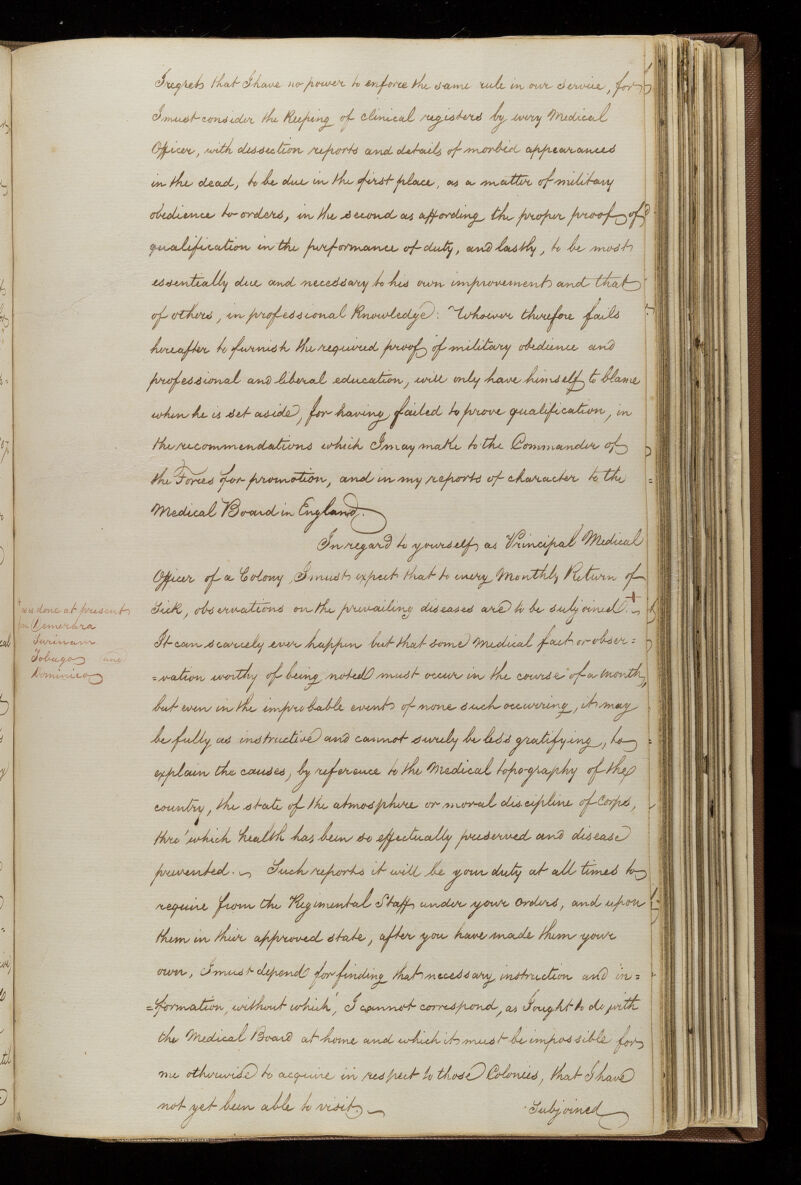 I regret that I have no power to enforce the same rule in our service, for
I must consider the keeping of clinical registers by every Medical
Officer, with dissection reports and details of morbid appearances
in the dead, to be due in the first place, as a matter of military
obedience to orders, in the second as affording the proper proof of
qualification in the performance of duty, and lastly, to be most
essentially due and necessary to his own improvement and that
of others, in professional knowledge: Whoever therefore fails
hereafter to furnish the required proof of military obedience and
professional and liberal education, will only have himself to blame
when he is set aside, for having failed to prove qualification, in
the recommendations which I may make to the Commander of
the Forces for promotion, and in my reports of character to the
Medical Board in England.
In regard to yourself as Principal Medical
Officer of a Colony, I must expect that to every Monthly Return of
Sick, observations on the prevailing diseases are to be subjoined.+
+ as is done at present
from Demerara
Surinam
Tobago and
Dominica
It can scarcely ever happen but that some Medical fact or obser=
=vation worthy of being noted must occur in the course of a month,
but even in the improbable event of none such occurring, it may
be fully as instructive and cannot surely be less gratifying, to
explain the causes, by reference to the Medical topography of the
country, the state of the atmosphere or moral discipline of Corps,
thro' which health has been so effectually preserved and disease
prevented. Such reports it will be your duty at all times to
require from the Regimental Staff under your orders, and upon
them in their approved state, after you have made them your
own, I must depend for finding that necessary instruction and in=
=formation, without which, I cannot correspond, as I ought to do, with
the Medical Board at home and which it must be impossible for
me otherwise to acquire in respect to those Colonies, that I have
not yet been able to visit.
Subjoined